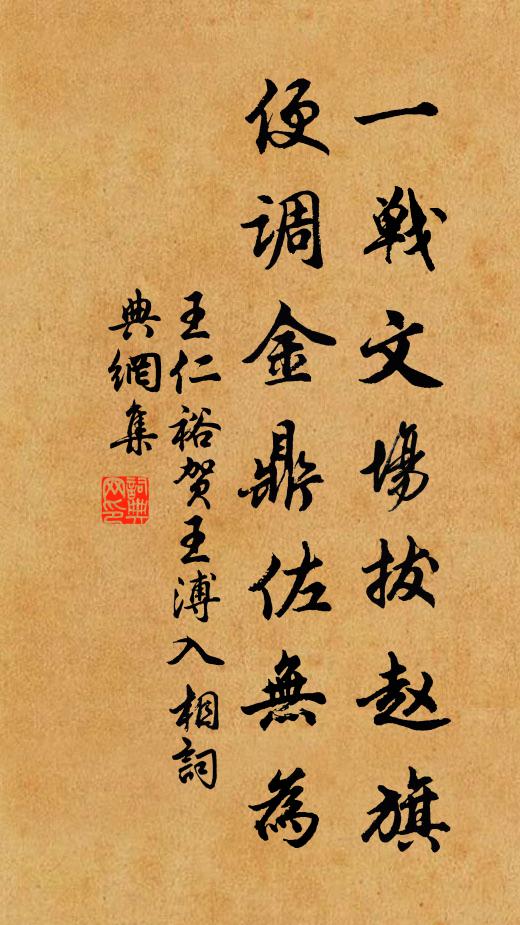 一戦文場拔赵旗
便调金鼎佐無為
王仁裕贺王溥入相詞
典網集
詞典网印